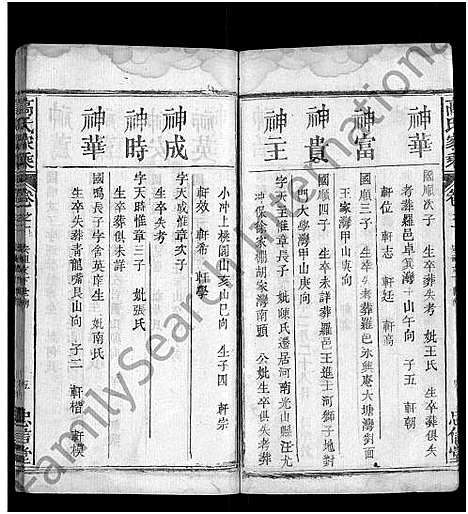 高氏家乘
神華
國順次子 生卒葬失考 妣王氏 生卒葬俱失
考葬羅邑卓箕灣山午向 子五 軒朝
軒位 軒志 軒廷 軒高
神富
國順三子 生卒失考葬羅邑 大塘灣劉面
王家灣甲山庚向
神貴
國順四子 生卒未詳葬羅邑王進士河獅子地對
門大學灣甲山庚向
神王
字天玉惟章長子 妣陳氏遷居河南光山縣汪尤
冲保徐家棚胡家灣南頭 公妣生卒俱失考葬
小冲上桃園山亥山巳向 生子四 軒宗
軒效 軒希 軒學
神成
字天成惟章次子
生卒失考
神時
字天時惟章三子 妣張氏
生卒葬俱未詳
神華
國鳴長子字含英庠生 妣南氏
生卒失葬青龍嘴艮山向 子二 軒楷 軒模
高氏家乘
卷之
忠信堂
忠信堂
FamilySearch International